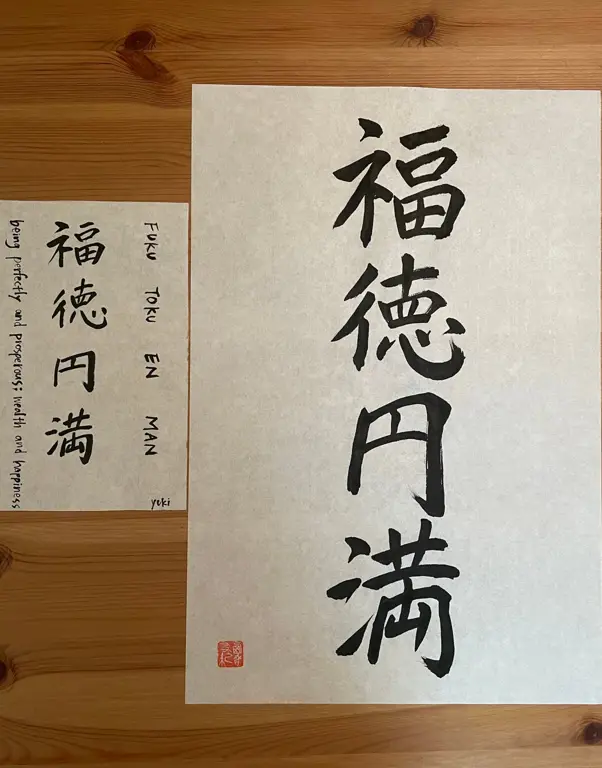 FUKU TOKU EN MAN
福徳円満
being perfectly and prosperous; and happiness
yuki
福徳円満